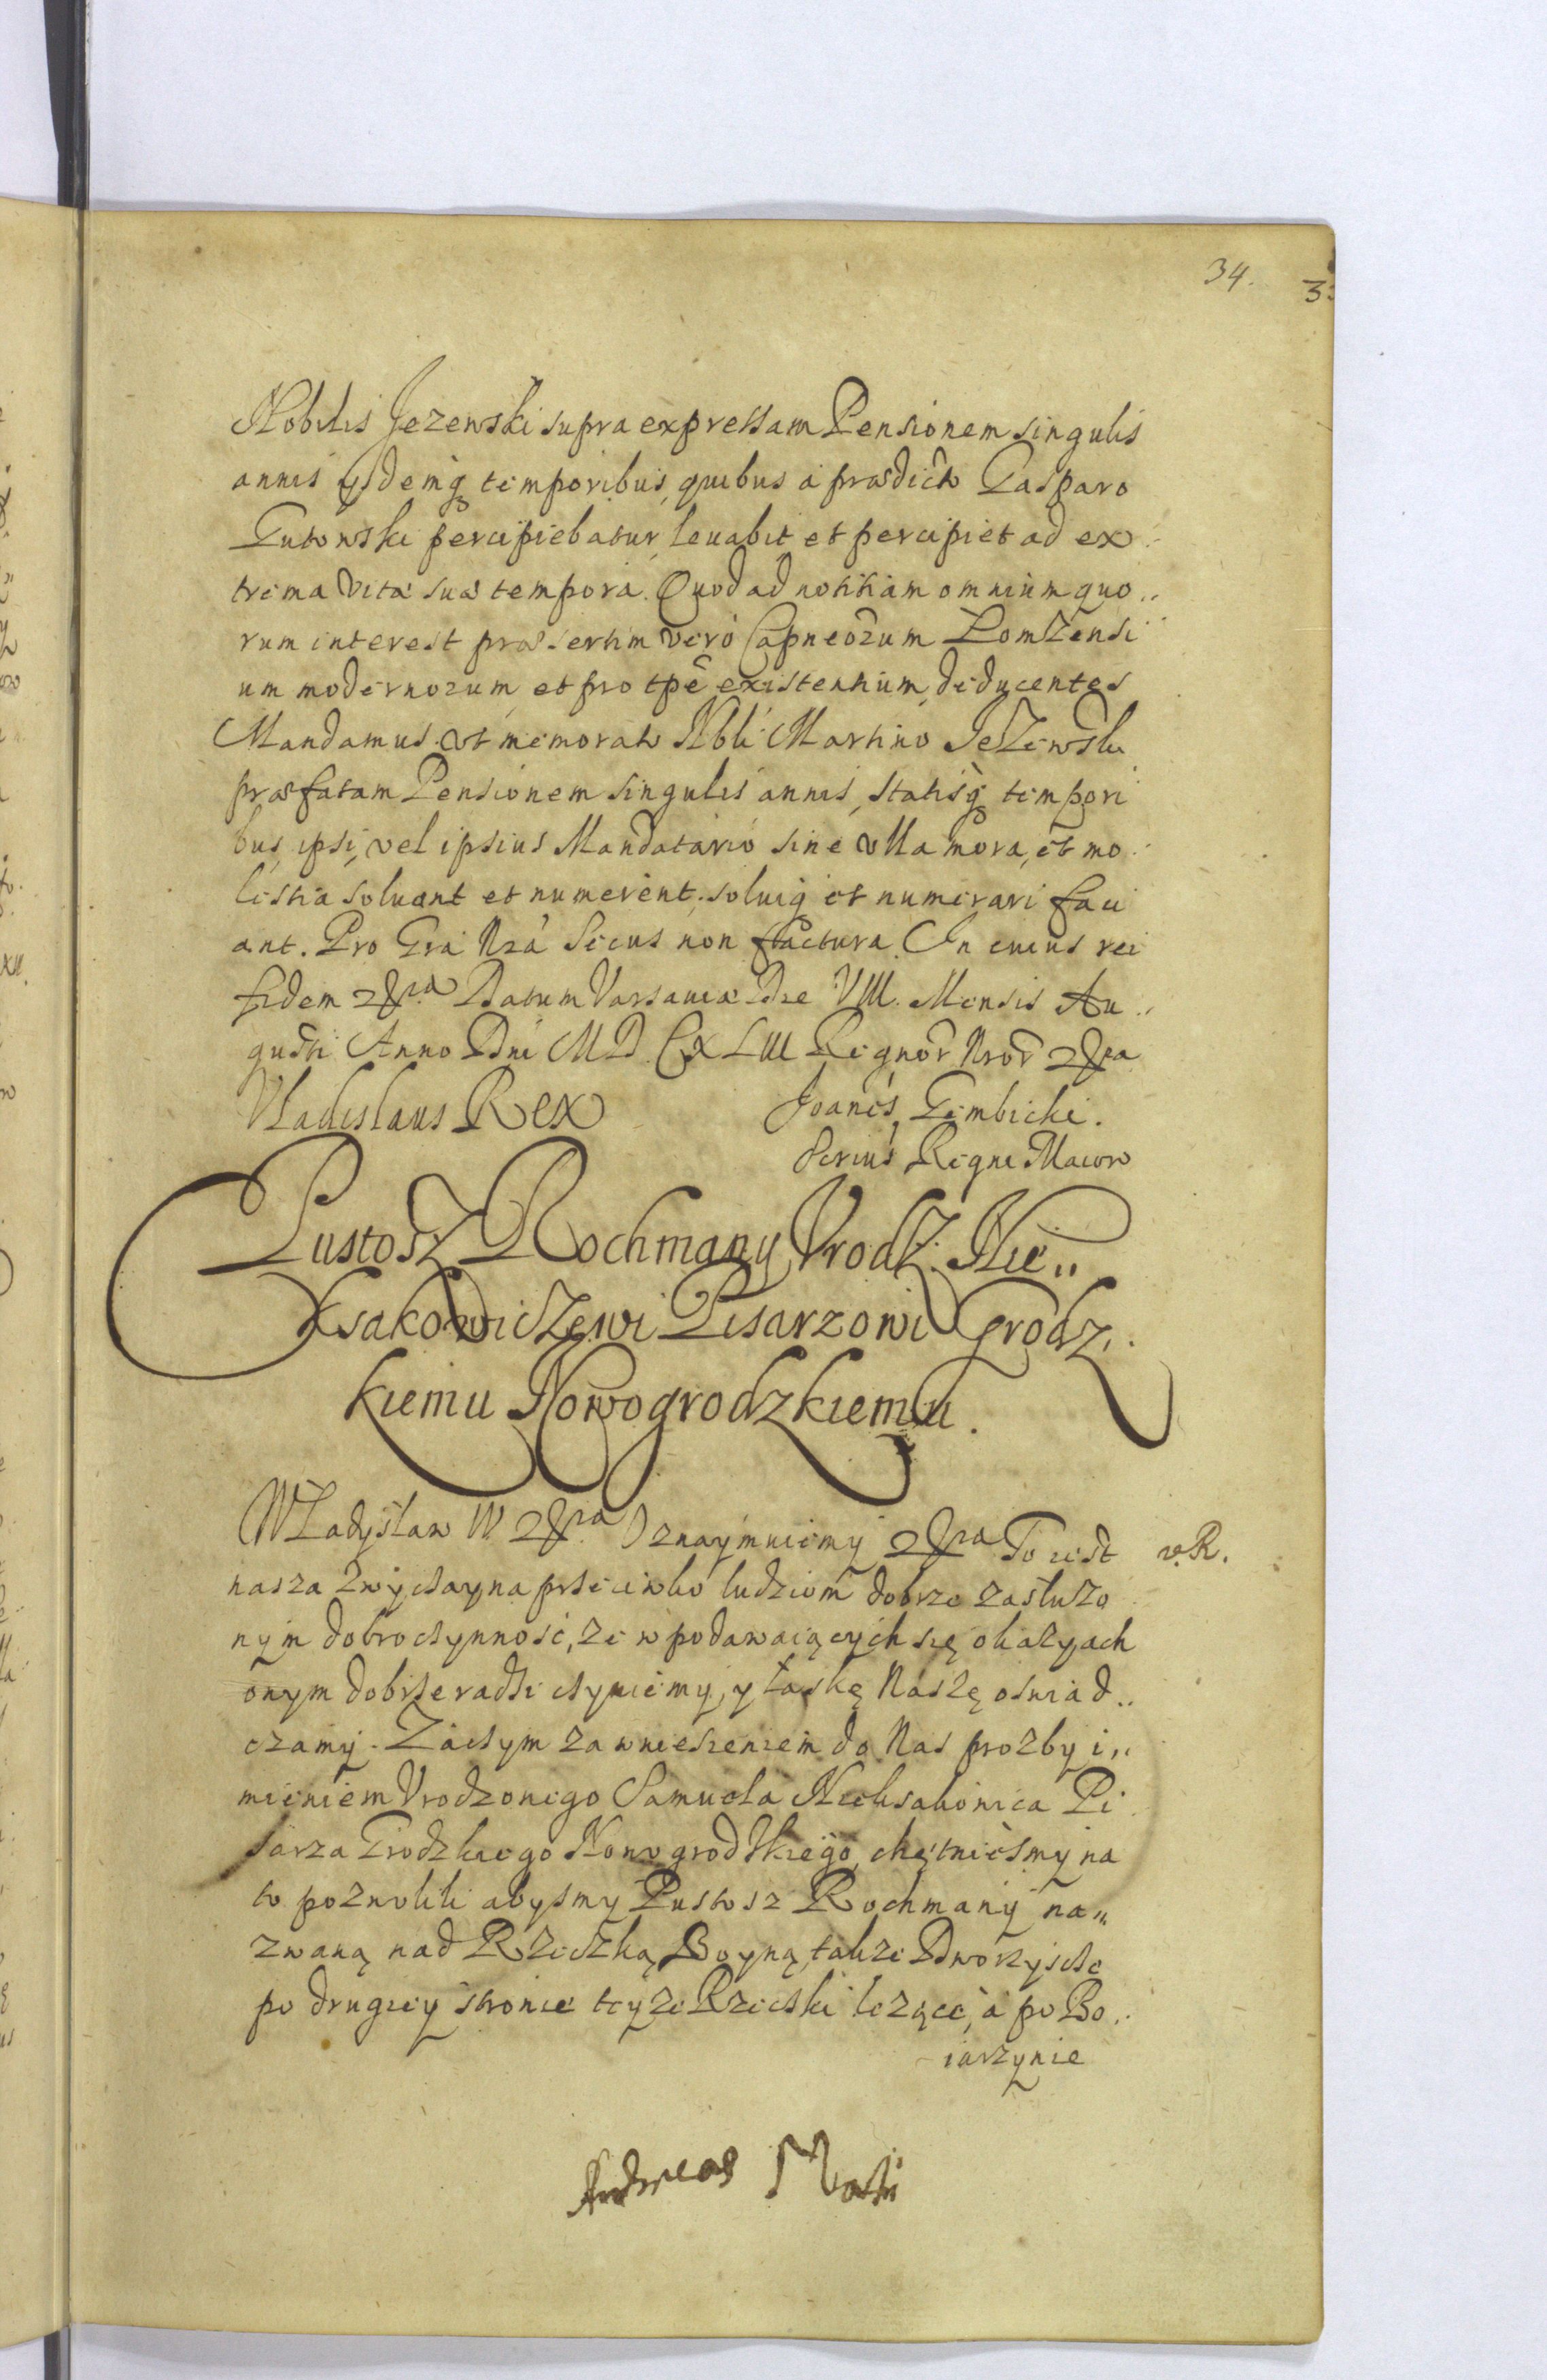 34.
3
Nobilis Jezewski supra expressam Pensionem singulis
annis ijsdemq temporibus, quibus a prædicto Gasparo
Gutowski percipiebatur, levabit et percipiet ad ex
trema vitæ suæ tempora. Quod ad notitiam omnium quo„
rum interest præsertim vero Capneorum Lomzensi
um modernorum, et pro tpe existentium, deducentes
Mandamus. vt memorato Nbli Martino Jezewski
præfatam Pensionem singulis annis, statisq tempori
bus, ipsi, vel ipsius Mandatario sine vlla mora, et mo
lestia soluant et numerent, soluiq et numerari faci
ant. Pro Gra Nra Secus non factura. In cuius rei
fidem &ra Datum Varsauiæ Die VIII. Mensis Au„
gusti Anno Dni MDCXLIII Regnor Nror &ra
Vladislaus Rex Joanes Gembicki.
Scrius Regni Maior
Pustosz Rochmany Vrodz. Nie„
ksakowiczewi Pisarzowi Grodz„
kiemu Nowogrodzkiemu.
Władysław IV &ra Oznaymuiemy &ra To iest
v.R.
nasza zwyczayna przeciwko ludziom dobrze zasłużo
nym dobroczynność, że w podawaiących się okazyach
onym dobrze radzi czyniemy, y łaskę Naszę oswiad„
czamy. Zaczym za wniesieniem do Nas prozby i„
mieniem Vrodzonego Samuela Nieksakowica Pi
sarza Grodzkiego Nowogrodzkiego, chętnieśmy na
to pozwolili abysmy Pustosz Rochmany na„
zwaną nad Rzeczką Boyną, także Dworzyscze
po drugiey stronie teyże Rzeczki leżące, a po Bo„
iarzynie
Andreas